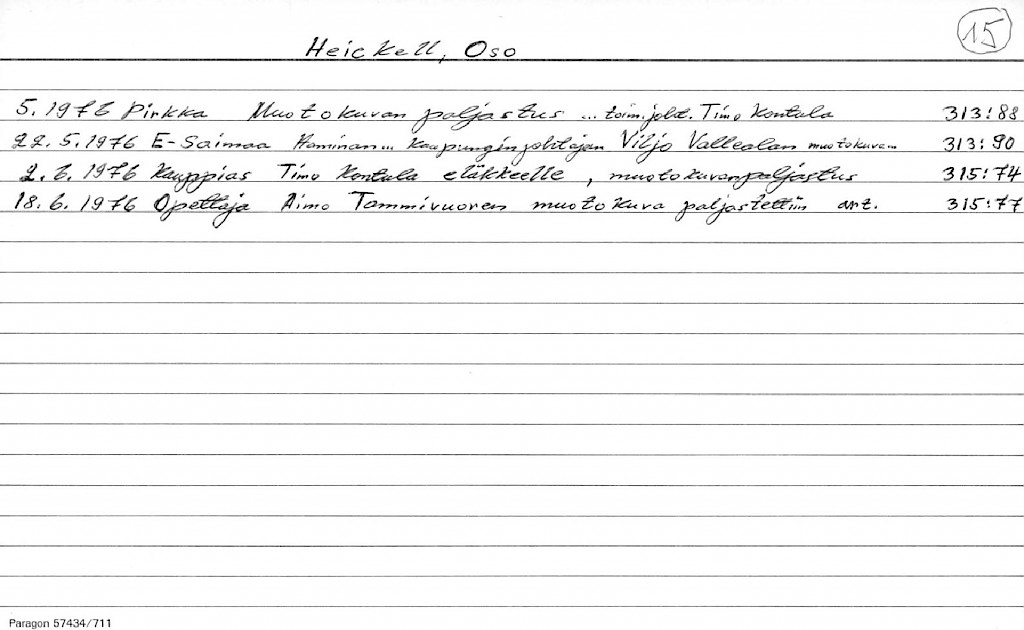 15
Heickell, Oso
5.1976 Pirkka Muotokuvan paljastus ... toim.joht. Timo Kontula 313:88
22.5.1976 E-Saimaa Haminan... kaupunginjohtajan Viljo Vallealan muotokuva... 313:90
2.6.1976 Kauppias Timo Kontula eläkkeelle, muotokuvanpaljastus 315:74
18.6.1976 Opettaja Aimo Tammivuoren muotokuva paljastettiin art. 315:77
Paragon 57434/711